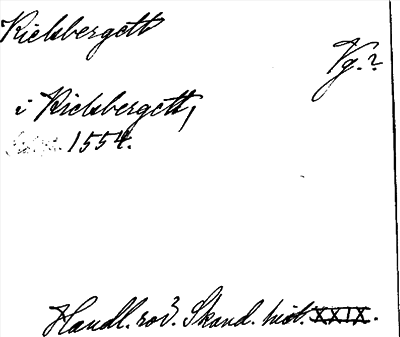 Kielsbergett
Vg.?
i Kielsbergett,
1554.
Handl. rör. Skand. hist. XXIX.